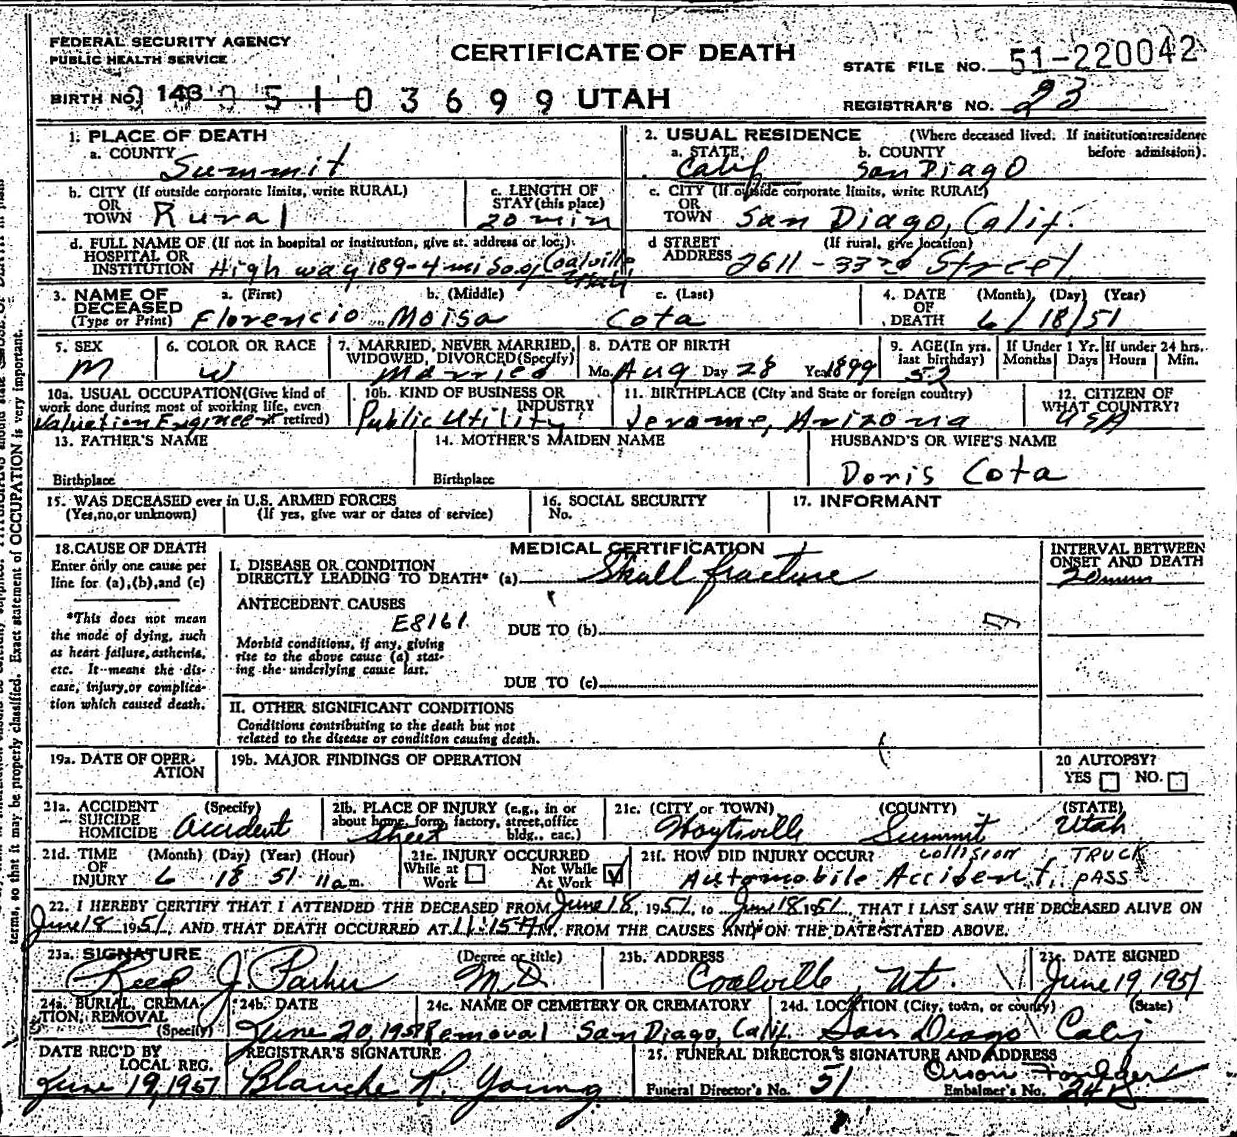 FEDERAL SECURITY AGENCY
PUBLIC HEALTH SERVICE
CERTIFICATE OF DEATH
STATE FILE NO. 51-220042
BIRTH NO. 143 051 03699 UTAH
REGISTRAR'S NO. 23
1. PLACE OF DEATH
a. COUNTY Summit
2. USUAL RESIDENCE (Where deceased lived. If institution: residence before admission).
a. STATE Calif b. COUNTY San Diago
b. CITY (If outside corporate limits, write RURAL) OR TOWN Rural
c. LENGTH OF STAY (this place) 20 min
c. CITY (If outside corporate limits, write RURAL) OR TOWN San Diago, Calif.
d. FULL NAME OF (If not in hospital or institution, give st. address or loc.) HOSPITAL OR INSTITUTION High way 189-4 mi So. of Coalville, Utah
d STREET ADDRESS (If rural, give location) 2611-33rd Street
3. NAME OF DECEASED (Type or Print)
a. (First) b. (Middle) c. (Last)
Florencio Moisa Cota
4. DATE OF DEATH (Month) (Day) (Year) 6/18/51
5. SEX M
6. COLOR OR RACE W
7. MARRIED, NEVER MARRIED, WIDOWED, DIVORCED (Specify) Married
8. DATE OF BIRTH Mo. Aug Day 28 Year 1899
9. AGE (In yrs. last birthday) 52
If Under 1 Yr. Months Days
If under 24 hrs. Hours Min.
10a. USUAL OCCUPATION (Give kind of work done during most of working life, even if retired) Valuation Engineer
10b. KIND OF BUSINESS OR INDUSTRY Public Utility
11. BIRTHPLACE (City and State or foreign country) Jerome, Arizona
12. CITIZEN OF WHAT COUNTRY? USA
13. FATHER'S NAME
Birthplace
14. MOTHER'S MAIDEN NAME
Birthplace
HUSBAND'S OR WIFE'S NAME
Doris Cota
15. WAS DECEASED ever in U.S. ARMED FORCES
(Yes, no, or unknown) (If yes, give war or dates of service)
16. SOCIAL SECURITY No.
17. INFORMANT
18. CAUSE OF DEATH
Enter only one cause per line for (a), (b), and (c)
*This does not mean the mode of dying, such as heart failure, asthenia, etc. It means the disease, injury, or complication which caused death.
MEDICAL CERTIFICATION
I. DISEASE OR CONDITION DIRECTLY LEADING TO DEATH* (a) Skull fracture
INTERVAL BETWEEN ONSET AND DEATH
20 min
ANTECEDENT CAUSES
E8161
DUE TO (b)
Morbid conditions, if any, giving rise to the above cause (a) stating the underlying cause last.
DUE TO (c)
II. OTHER SIGNIFICANT CONDITIONS
Conditions contributing to the death but not related to the disease or condition causing death.
19a. DATE OF OPERATION
19b. MAJOR FINDINGS OF OPERATION
20 AUTOPSY?
YES NO.
21a. ACCIDENT SUICIDE HOMICIDE (Specify) Accident
21b. PLACE OF INJURY (e.g., in or about home, farm, factory, street, office bldg., eac.) Street
21c. (CITY or TOWN) (COUNTY) (STATE)
Hoytsville Summit Utah
21d. TIME OF INJURY (Month) (Day) (Year) (Hour) 6 18 51 11 a m.
21e. INJURY OCCURRED
While at Work Not While At Work
21f. HOW DID INJURY OCCUR? collision, TRUCK
Automobile Accident, PASS
22. I HEREBY CERTIFY THAT I ATTENDED THE DECEASED FROM June 18, 1951, to June 18 1951, THAT I LAST SAW THE DECEASED ALIVE ON
June 18 1951, AND THAT DEATH OCCURRED AT 11:15 A M. FROM THE CAUSES AND ON THE DATE STATED ABOVE.
23a. SIGNATURE (Degree or title)
Reed J. Parker M.D
23b. ADDRESS
Coalville, Ut.
23c. DATE SIGNED
June 19, 1951
24a. BURIAL, CREMATION, REMOVAL (Specify)
24b. DATE
June 20, 1951
24c. NAME OF CEMETERY OR CREMATORY
Removal San Diago, Calif.
24d. LOCATION (City, town, or county) (State)
San Diago Calif
DATE REC'D BY LOCAL REG.
June 19, 1951
REGISTRAR'S SIGNATURE
Blanche R. Young
25. FUNERAL DIRECTOR'S SIGNATURE AND ADDRESS
Orson Foulger
Funeral Director's No. 51 Embalmer's No.
terms, so that it may be properly classified. Exact statement of OCCUPATION is very important.